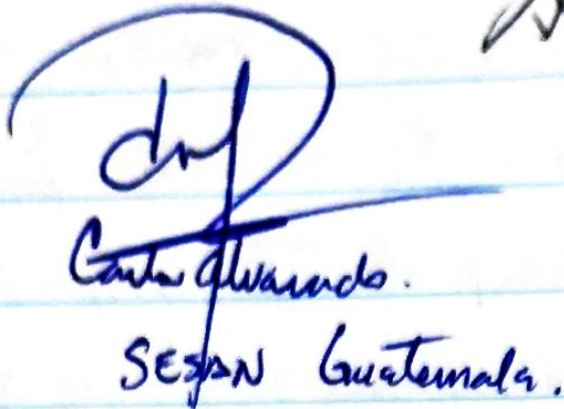 Carlos Alvarado.
SESAN Guatemala.